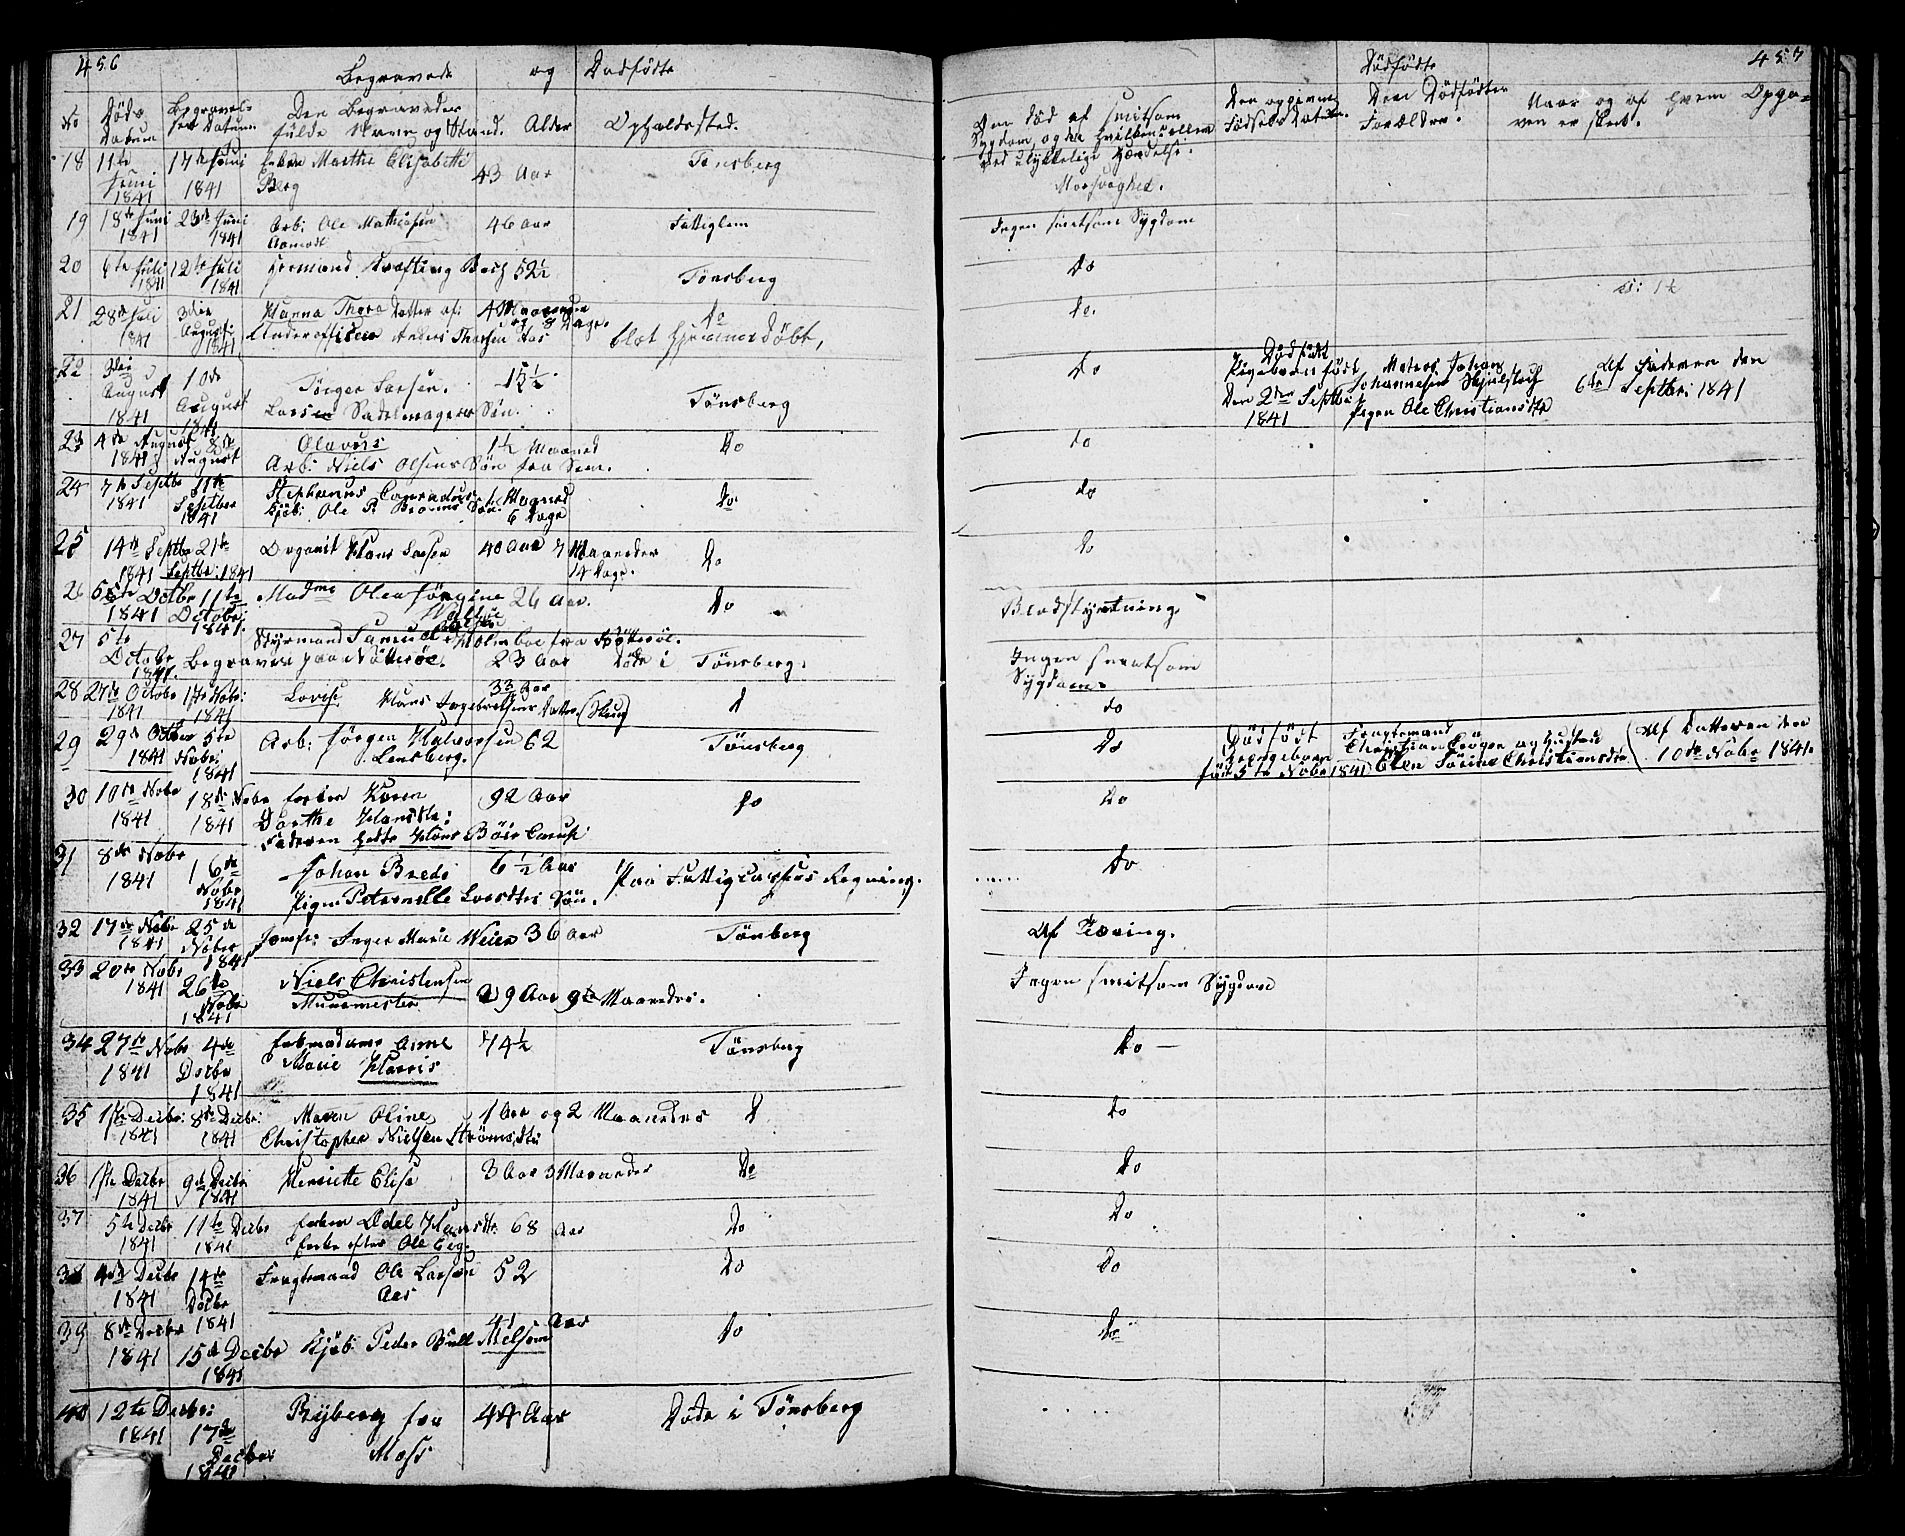 456
Begravede og Dødfødte
No Døds Datum Begravelses Datum Den Begravedes fulde Navn og Stand. Alder Opholdssted.
18 11te Juni 1841 17de Juni 1841 Enken Marthe Elisabeth Berg 43 Aar Tønsberg
19 18de Juni 1841 23de Juni 1841 Arb: Ole Mathiasen 46 Aar Fattiglem
20 6te Juli 1841 12te Juli 1841 Bach 52½ Tønsberg
21 28de Juli 1841 3die August 1841 Hanna Thora Datter af: Underofficer Anders Thorsen Aas 4 Maaneder og 8 Dage. do
blot hjemmedøbt,
22 3die August 1841 10de August 1841 Jørgen Larsen. Larsen Sadelmagers Søn. 15½ Tønsberg
23 4de August 1841 8de August Olavus 1½ Maaned Do
Arb: Niels Olsens Søn fra Sem.
24 7de Septbr 1841 11te Septber 1841 Stephanus Conradus Kjøb: Ole P. Bruuns Søn. 1 Maaned 6 Dage do.
25 14de Septbr 1841 21de Septbr: 1841 Organist Hans Larsen 40 Aar 7 Maaneder 14 Dage. Do
26 5te Octbr 1841 11te Octobr: 1841. Madme Olea Jørgine 26 Aar. Do
27 5te Octobr 1841. Styrmand Samuel Holmboe fra Nøtterøe.
Begraven paa Nøtterøe. 23 Aar Døde i Tønsberg.
28 27de Octobr 1841 1ste Nobr: 1841 Lovise Hans Ingebretsens Datter (Skrug) 33 Aar d
29 29de Octbr 1841 5te Nobr: 1841 Arb: Jørgen Halvorsen Lensberg. 62 Tønsberg
30 10de Nobr 1841 18de Nobr 1841 Enken Karen Dorthe Hansdtr: 92 Aar do
Faderen hedte Hans Böie
31 8de Nobr 1841 16de Nobr 1841 Johan Brede 6½ Aar Paa Fattigcassens Regning.
Pigen Petronelle Larsdtrs Søn.
32 17de Nobr 1841 25de Nobr 1841 Jomfr: Inger Marie Weier 36 Aar Tönberg
33 20de Nobr 1841 26te Nobr 1841 Niels Christensen Muurmester 29 Aar 9 Maaneder.
34 27de Nobr 1841 4de Decbr 1841 Enkemadame Anne Marie Harris 74½ Tönsberg
35 1ste Decbr: 1841 8de Decbr: 1841 Maren Oline 1 Aar og 2 Maaneder d
Christopher Nielsen Strömsdtr
36 1ste Decbr 1841 9de Decbr 1841 Henriette Elise 3 Aar 3 Maaneder Do
37 5te Decbr 1841 11te Decbr 1841 Enken Odel Hansdtr. 68 Aar Do
Enke efter Ole Eeg.
38 4de Decbr 1841 14de Decbr 1841 Fragtemand Ole Larsen Aas 52 Do
39 8de Decbr 1841 15de Decbr 1841 Kjøb: Peder Bull Melsom 41 Aar Do
40 12te Decbr: 1841 17de Decbr 1841 Ryberg fra Moss 44 Aar Døde i Tönsberg
457
Dødfødte
Om død af smitsom Sygdom, og da hvilken eller ved ulykkelige Hændelse. Den opgivne Fødsels Datum. Den Dødfødtes Forældre. Naar og af hvem Opgaven er skeet.
Morsvaghed.
Ingen smitsom Sygdom
do
do. d: 1ste
do Dødfødt Pigebarn født Den 2den Septbr: 1841 Matros Johan Johannesen Pigen Ole Christiansdtr Af Faderen den 6te Septbr: 1841
do
do
do
Blodstyrtning.
Ingen smitsom Sygdom.
do
Do Dødfödt Drengebarn født 5te Nobr 1841 Fragtemand Christian og Hustrue Elen Sørine Christiansdtr Af Datteren den 10de Nobr 1841.
do
do
Af Tæring.
Ingen smitsom Sygdom
Do —
do
do
Do
do
do